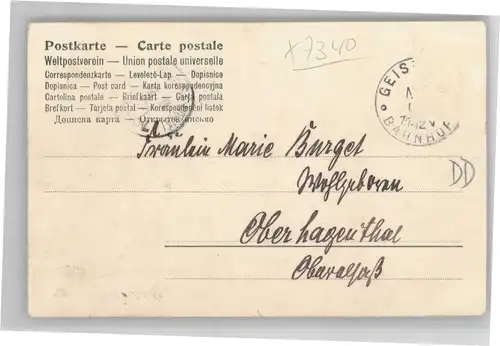 Postkarte — Carte postale
Weltpostverein — Union postale universelle
Correspondenzkarte — Levelező-Lap — Dopisnice
Dopisnica — Post card — Karta korespondencyjna
Cartolina postale — Briefkaart — Carta postala
Brefkort — Tarjeta postal — Korespondenční lístek
Дописна карта — Открытое письмо
x7340
GEIS
11-12V
BAHNHOF
Fräulein Marie Burget
Wohlgeboren
DD
Oberhagenthal
Oberelsaß